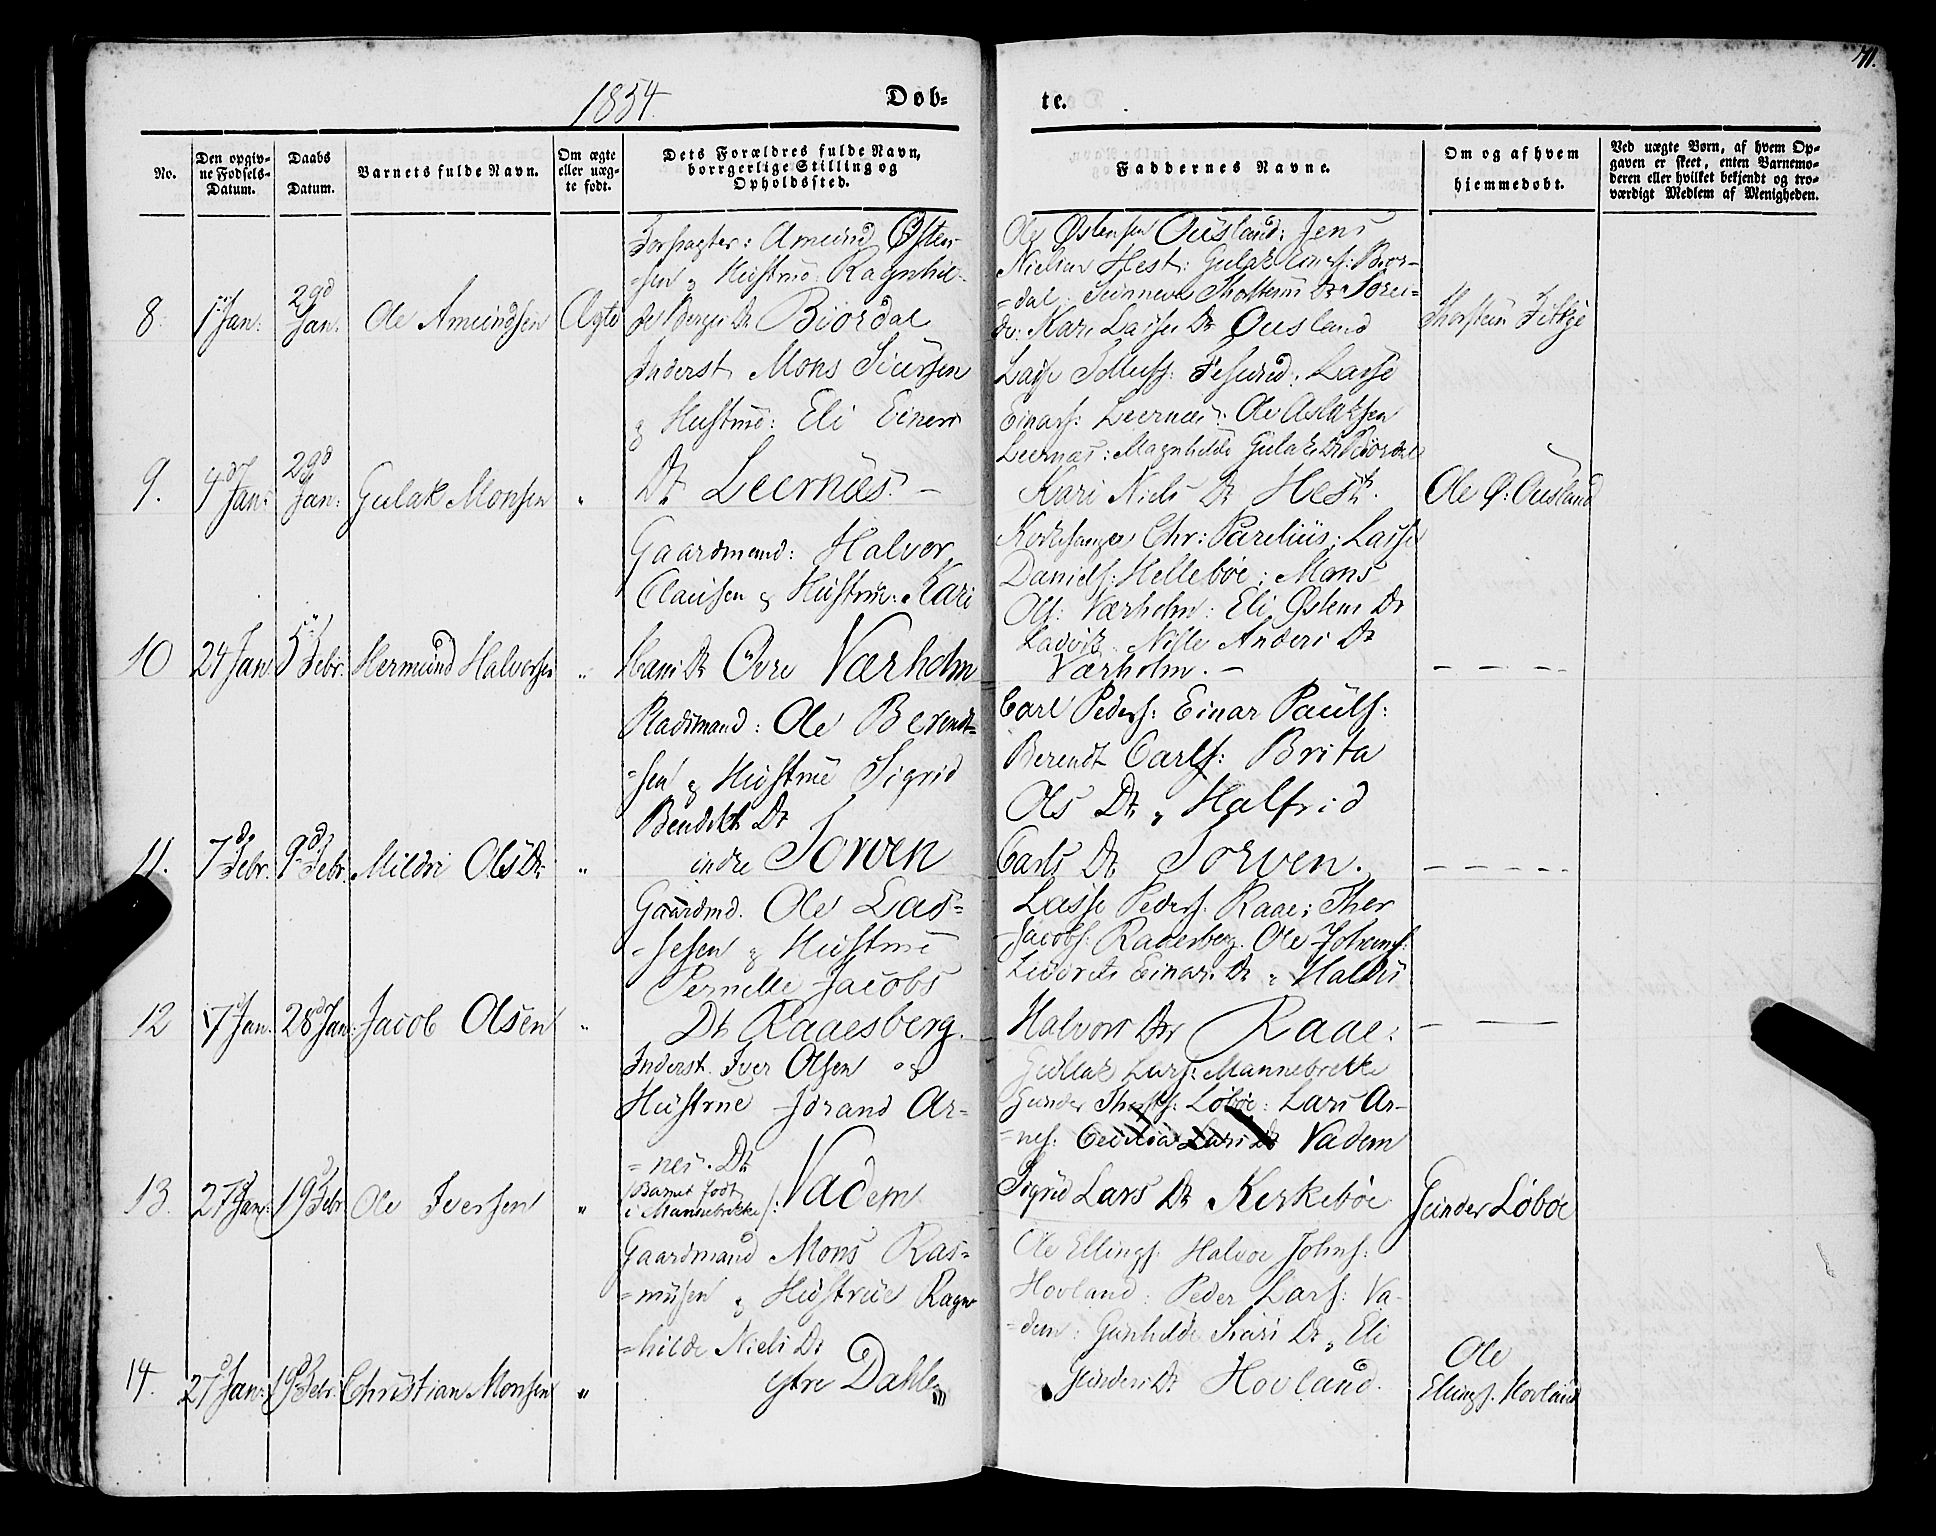 71.
1854.
Døb-
te.
No.
Den opgiv-
ne Fødsels-
Datum.
Daabs
Datum.
Barnets fulde Navn.
Om ægte
eller uæg-
te født.
Dets Forældres fulde Navn,
borrgerlige Stilling og
Opholdssted.
Faddernes Navne.
Om og af hvem
hjemmedøbt.
Ved uægte Børn, af hvem Op-
gaven er skeet, enten Barnemo-
deren eller hvilket bekjendt og tro-
værdigt Medlem af Menigheden.
8.
1 Jan:
29d
Jan:
Ole Amundsen
Ægte
Forpagter: Amund Østen-
=sen & Hustrue Ragnhil-
de Bergs Dr Biordal
Ole Østensen Ousland: Jens
Nielsen Hest: Gulak Bior-
=dal: Sünneve Dr
Kari Lasse Dr Ousland
Thorstein
9.
4d
Jan:
29d
Jan:
Gulak Monsen
"
Inderst Mons Siursen
& Hustrue: Eli Einers
Dr Leernæs. -
Lasse Lasse
Einars: Leernæs: Ole Aslaksen
Leernæs: Magnhilde Gulaks Dr Biordal
Kari Niels Dr Hest.
Ole Ø: Ousland
10
24 Jan
5 Febr:
Hermund Halvorsen
"
Gaardmand: Halvor
Clausen & Hustrue: Kari
Dr Øvre Værholm
Kirkesanger Chr: Parelius: Lasse
Daniels: Hellebøe: Mons
Ols: Værholm: Eli Østens Dr
Ladvik Anders Dr
Værholm. -
- - - -
11.
7d
Febr.
9d
Febr.
Mildri Ols Dr
"
Pladsmand: Ole Berendt-
=sen & Hustrue Sigrid
Bendikt Dr
indre Torven
Carl Peders: Einar Pauls:
Berendt Carls: Brita
Ols Dr, Halfrid
Carls Dr Torven.
- - - -
12
17 Jan.
28d Jan:
Jacob Olsen
"
Gaardmd. Ole Las=
=sesen & Hustrue
Pernille Jacobs
Dr Raaesberg.
Lasse Peders. Raae; Ther
Jacobs: Raaesberg. Ole Johans:
Einars Dr,
Halvors Dr Raae:
- -
13.
27d Jan:
19d Febr
Ole Iversen
"
Inderst. Iver Olsen og
Hustrue Jorand Ar=
=nes. Dr
(Barnet født
i Mannebrekke): Vadem
Gullak Lars: Mannebrekke
Gunder Løbøe: Lars Ar-
=nes: Cecilia Lars Dr Vadem
Sigrid Lars Dr Kirkebøe
Gunder Løbøe
14.
27d Jan:
19d Febr:
Christian Monsen
"
Gaardmand Mons Ras=
=musen & Hustrue Ragn
=hilde Niels Dr
ytre Dahle
Ole Ellings: Halvor Johns:
Hovland: Peder Lars: Va-
=dem: Gunhilde Dr, Eli
Gunders Dr Hovland.
Ole
Ellings. Hovland